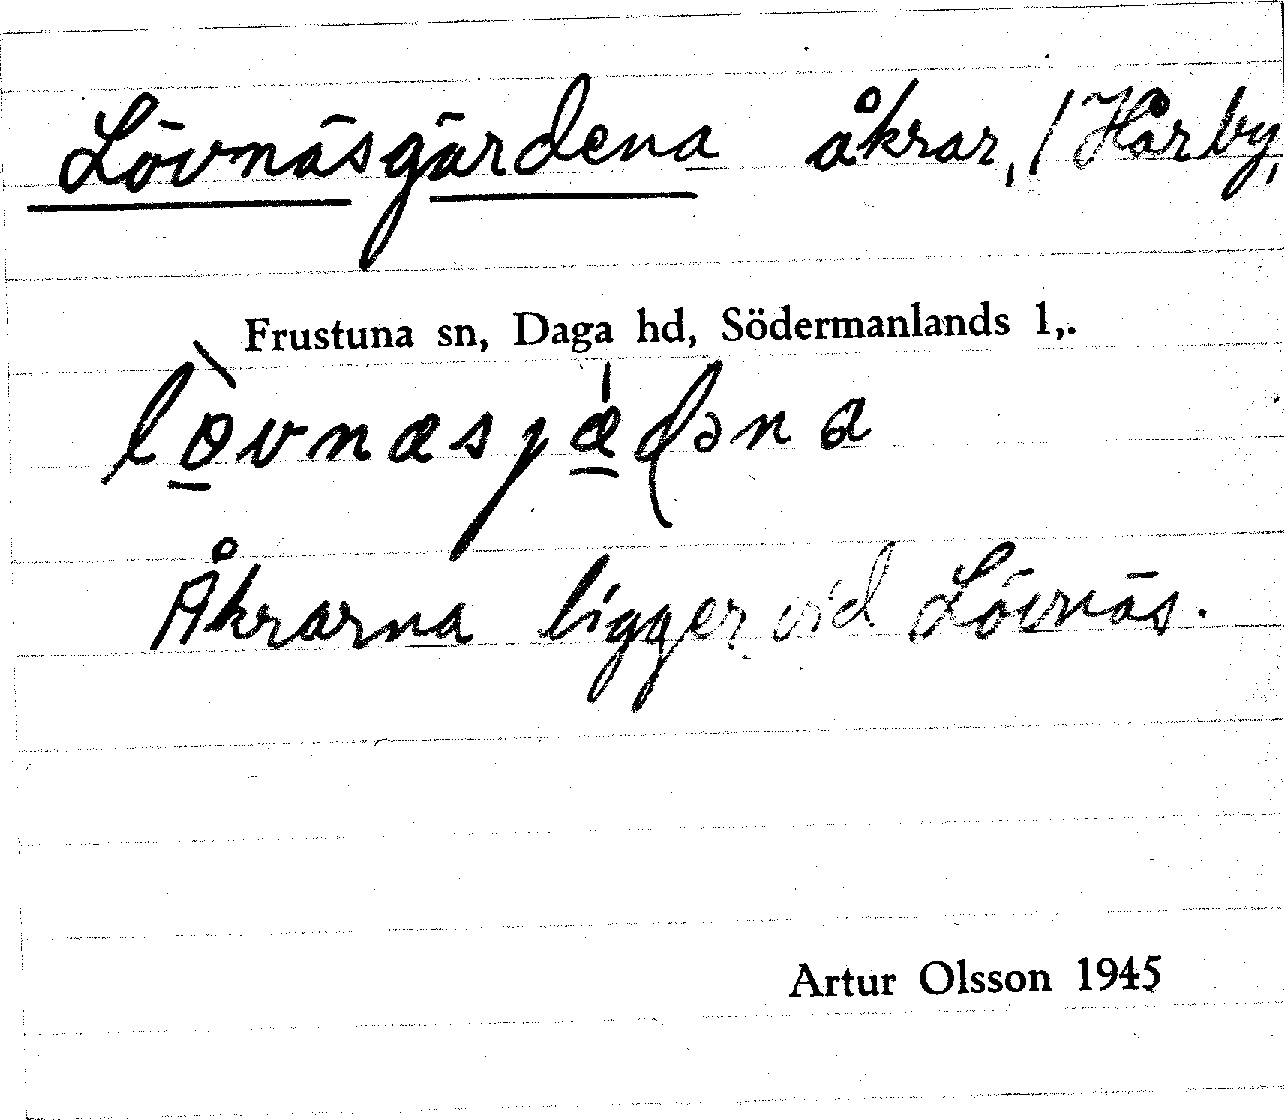 Lövnäsgärdena åkrar, / Hårby,
Frustuna sn, Daga hd, Södermanlands l,.
lòvnæsjæ̍ḍəna
Åkrarna ligger vid Lövnäs.
Artur Olsson 1945